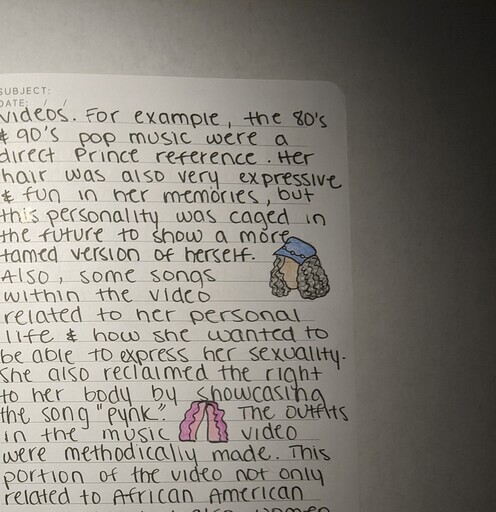 SUBJECT:
DATE: / /
videos. For example, the 80's
& 90's pop music were a
direct Prince reference. Her
hair was also very expressive
& fun in her memories, but
this personality was caged in
the future to show a more
tamed version of herself.
Also, some songs
within the video
related to her personal
life & how she wanted to
be able to express her sexuality.
She also reclaimed the right
to her body by showcasing
the song "Pynk". The outfits
in the music video
were methodically made. This
portion of the video not only
related to African American
also women